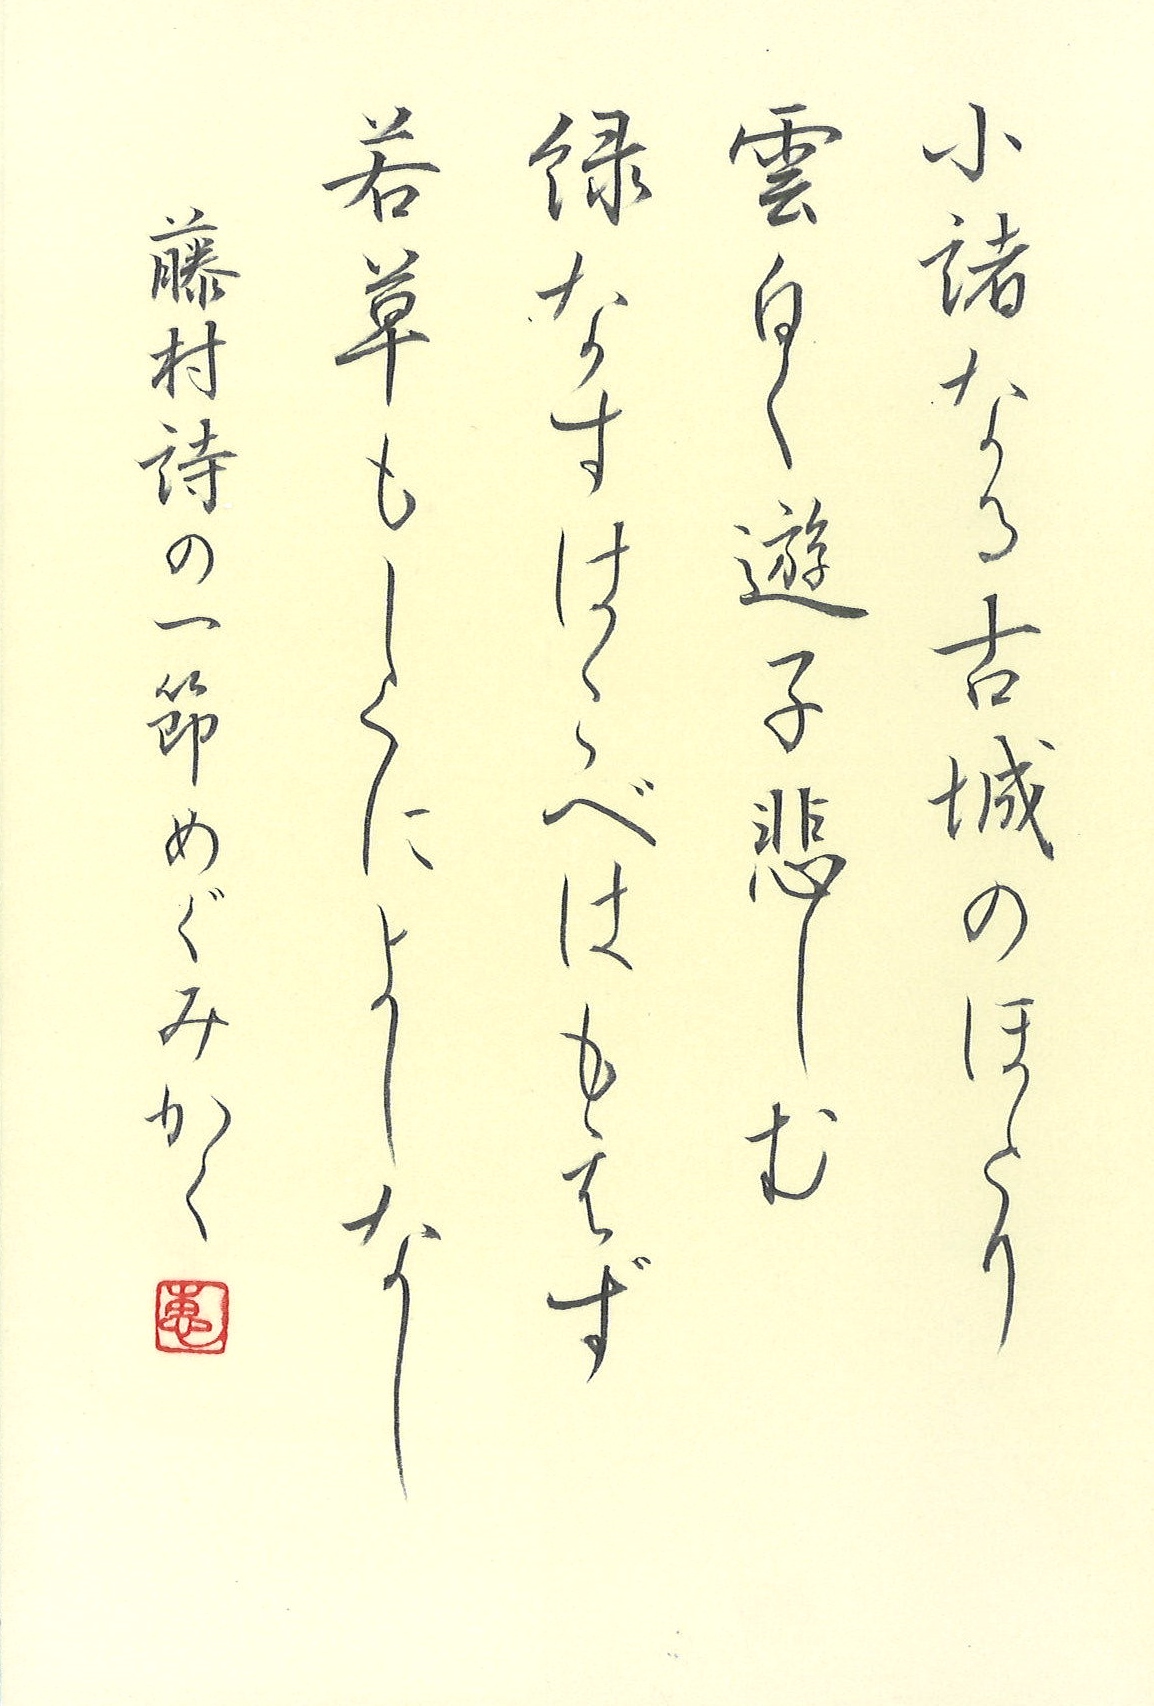 小諸なる古城のほとり
雲白く遊子悲しむ
緑なすはこべはもえず
若草もしくによしなし
藤村詩の一節めぐみかく
恵